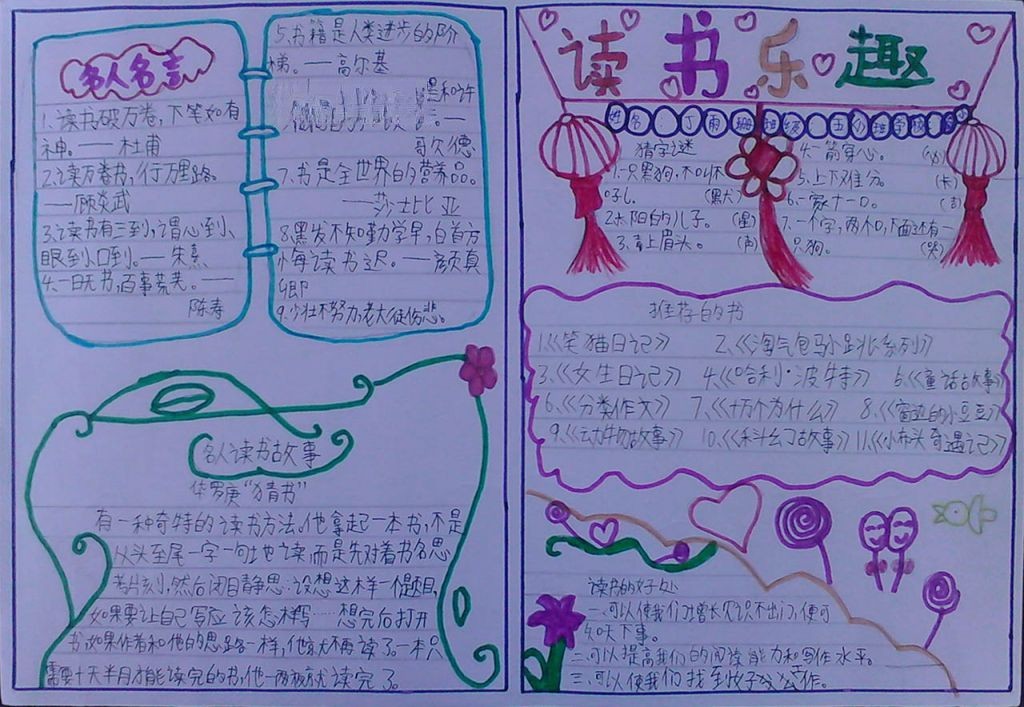 名人名言
1、读书破万卷,下笔如有
神。——杜甫
2、读万卷书,行万里路。
——顾炎武
3、读书有三到,谓心到、
眼到、口到。——朱熹
4、一日无书,百事荒芜。——
陈寿
5、书籍是人类进步的阶
梯。——高尔基
和许
哥尔德
7、书是全世界的营养品。
——莎士比亚
8、黑发不知勤学早,白首方
悔读书迟。——颜真
卿
9、少壮不努力,老大徒伤悲。
名人读书故事
华罗庚“猜书”
有一种奇特的读书方法,他拿起一本书,不是
从头至尾一字一句地读,而是先对着书名思
考片刻,然后闭目静思:设想这样一个题目,
如果要让自己写应该怎样写……想完后打开
书,如果作者和他的思路一样,他就不再读了。一本只
需要十天半月才能读完的书,他一两夜就读完了。
读书乐趣
姓名 丁雨珊 班级 五 班 学校 小
猜字谜
1、一只黑狗,不叫不
吼。(默犬)
2、太阳的儿子。(星)
3、青上眉头。(声)
4、一箭穿心。(必)
5、上下难分。(卡)
6、一家十一口。(吉)
7、一个字,两个口,下面还有一
只狗。(哭)
推荐的书
1、《笑猫日记》 2、《淘气包马小跳系列》
3、《女生日记》 4、《哈利·波特》 5、《童话故事》
6、《分类作文》 7、《十万个为什么》 8、《窗边的小豆豆》
9、《动物故事》 10、《科幻故事》 11、《小布头奇遇记》
读书的好处
一、可以使我们增长见识,不出门,便可
知天下事。
二、可以提高我们的阅读能力和写作水平。
三、可以使我们找到好工作。